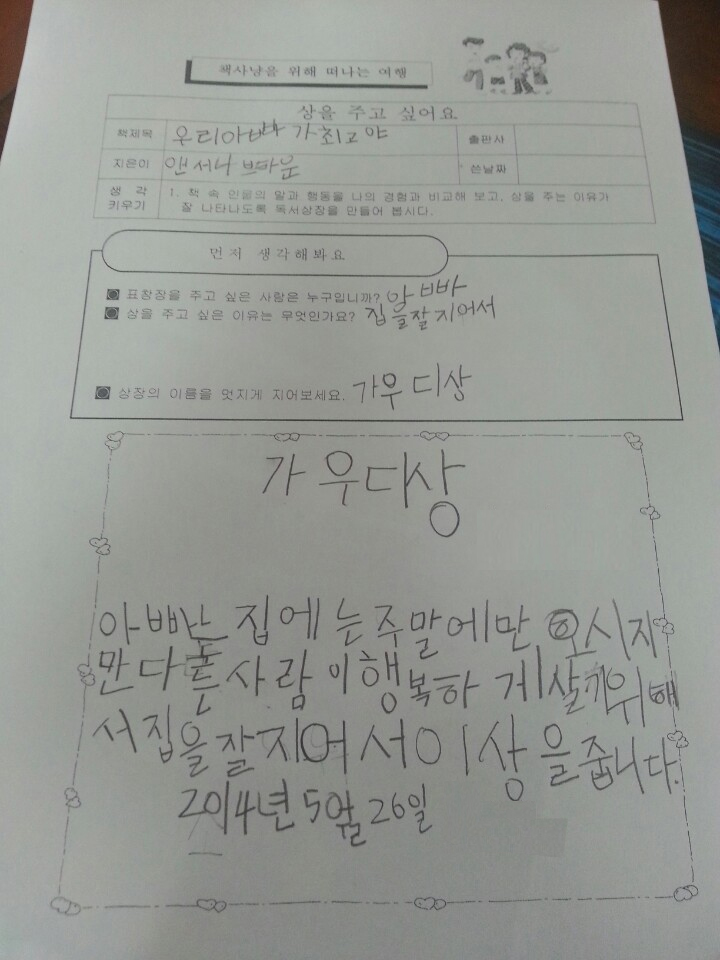 책사냥을 위해 떠나는 여행
상을 주고 싶어요
책제목 우리아빠가최고야 출판사
지은이 앤서니 브라운 쓴날짜
생 각 키우기 1. 책 속 인물의 말과 행동을 나의 경험과 비교해 보고, 상을 주는 이유가
잘 나타나도록 독서상장을 만들어 봅시다.
먼저 생각해봐요
표창장을 주고 싶은 사람은 누구입니까? 아빠
상을 주고 싶은 이유는 무엇인가요? 집을잘지어서
상장의 이름을 멋지게 지어보세요. 가우디상
가우디상
아빠는 집에는주말에만 오시지
만다른사람이행복하게살기위해
서집을잘지어서이상을줍니다.
2014년 5월 26일